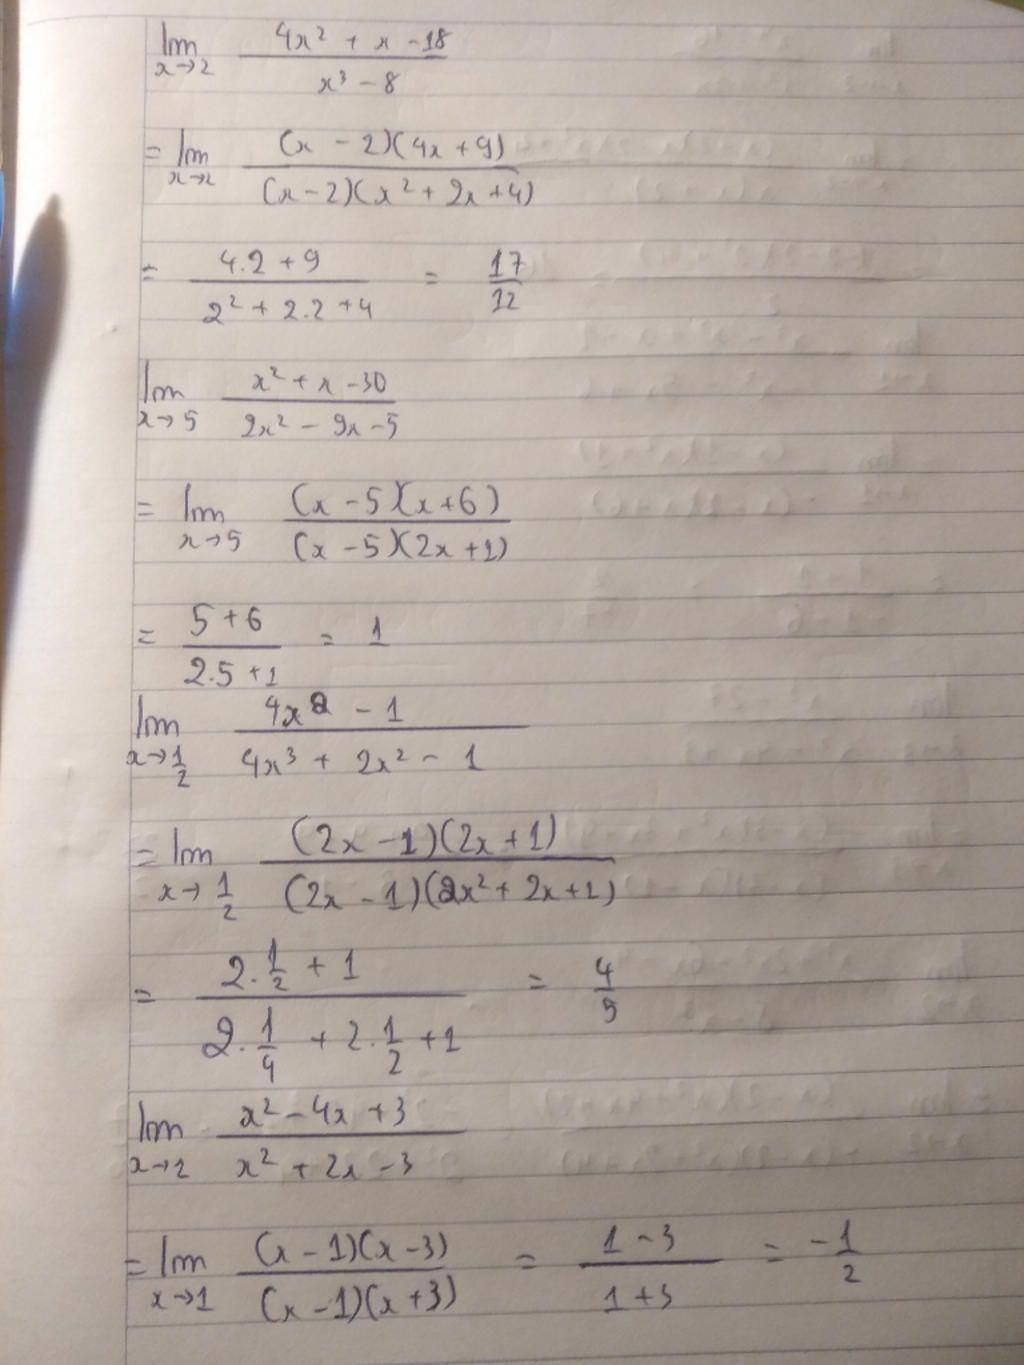 lim x→2 (4x² + x - 18)/(x³ - 8)
= lim x→2 ((x - 2)(4x + 9))/((x - 2)(x² + 2x + 4))
= (4.2 + 9)/(2² + 2.2 + 4) = 17/12
lim x→5 (x² + x - 30)/(2x² - 9x - 5)
= lim x→5 ((x - 5)(x + 6))/((x - 5)(2x + 1))
= (5 + 6)/(2.5 + 1) = 1
lim x→1/2 (4x² - 1)/(4x³ + 2x² - 1)
= lim x→1/2 ((2x - 1)(2x + 1))/((2x - 1)(2x² + 2x + 1))
= (2.1/2 + 1)/(2.1/4 + 2.1/2 + 1) = 4/5
lim x→2 (x² - 4x + 3)/(x² + 2x - 3)
= lim x→1 ((x - 1)(x - 3))/((x - 1)(x + 3)) = (1 - 3)/(1 + 3) = -1/2